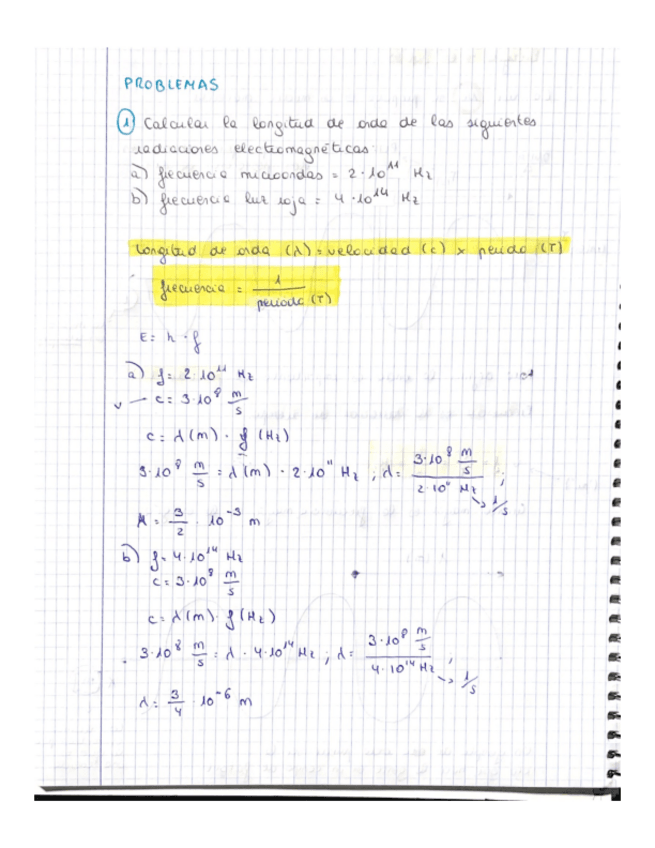 PROBLEMAS
1 Calcular la longitud de onda de las siguientes
radiaciones electromagnéticas
a) frecuencia microondas = 2·10¹¹ Hz
b) frecuencia luz roja = 4·10¹⁴ Hz
Longitud de onda (λ) = velocidad (c) x periodo (T)
frecuencia = 1 / periodo (T)
E = h · f
a) f = 2·10¹¹ Hz
v — c = 3·10⁸ m/s
c = λ(m) · f (Hz)
3·10⁸ m/s = λ(m) · 2·10¹¹ Hz ; λ = 3·10⁸ m/s / 2·10¹¹ Hz ; → 1/s
λ = 3/2 · 10⁻³ m
b) f = 4·10¹⁴ Hz
c = 3·10⁸ m/s
c = λ(m) · f (Hz)
3·10⁸ m/s = λ · 4·10¹⁴ Hz ; λ = 3·10⁸ m/s / 4·10¹⁴ Hz ; → 1/s
λ = 3/4 · 10⁻⁶ m